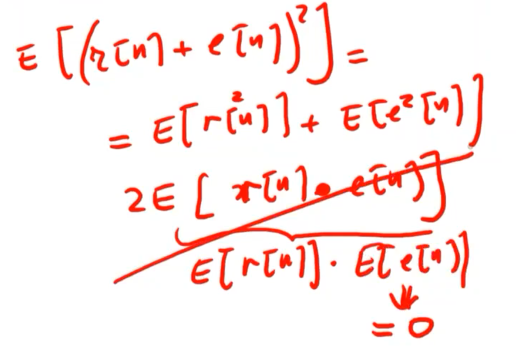 E[(r[n] + e[n])²] =
= E[r²[n]] + E[e²[n]]
2E[r[n] • e[n]]
E[r[n]] · E[e[n]]
= 0